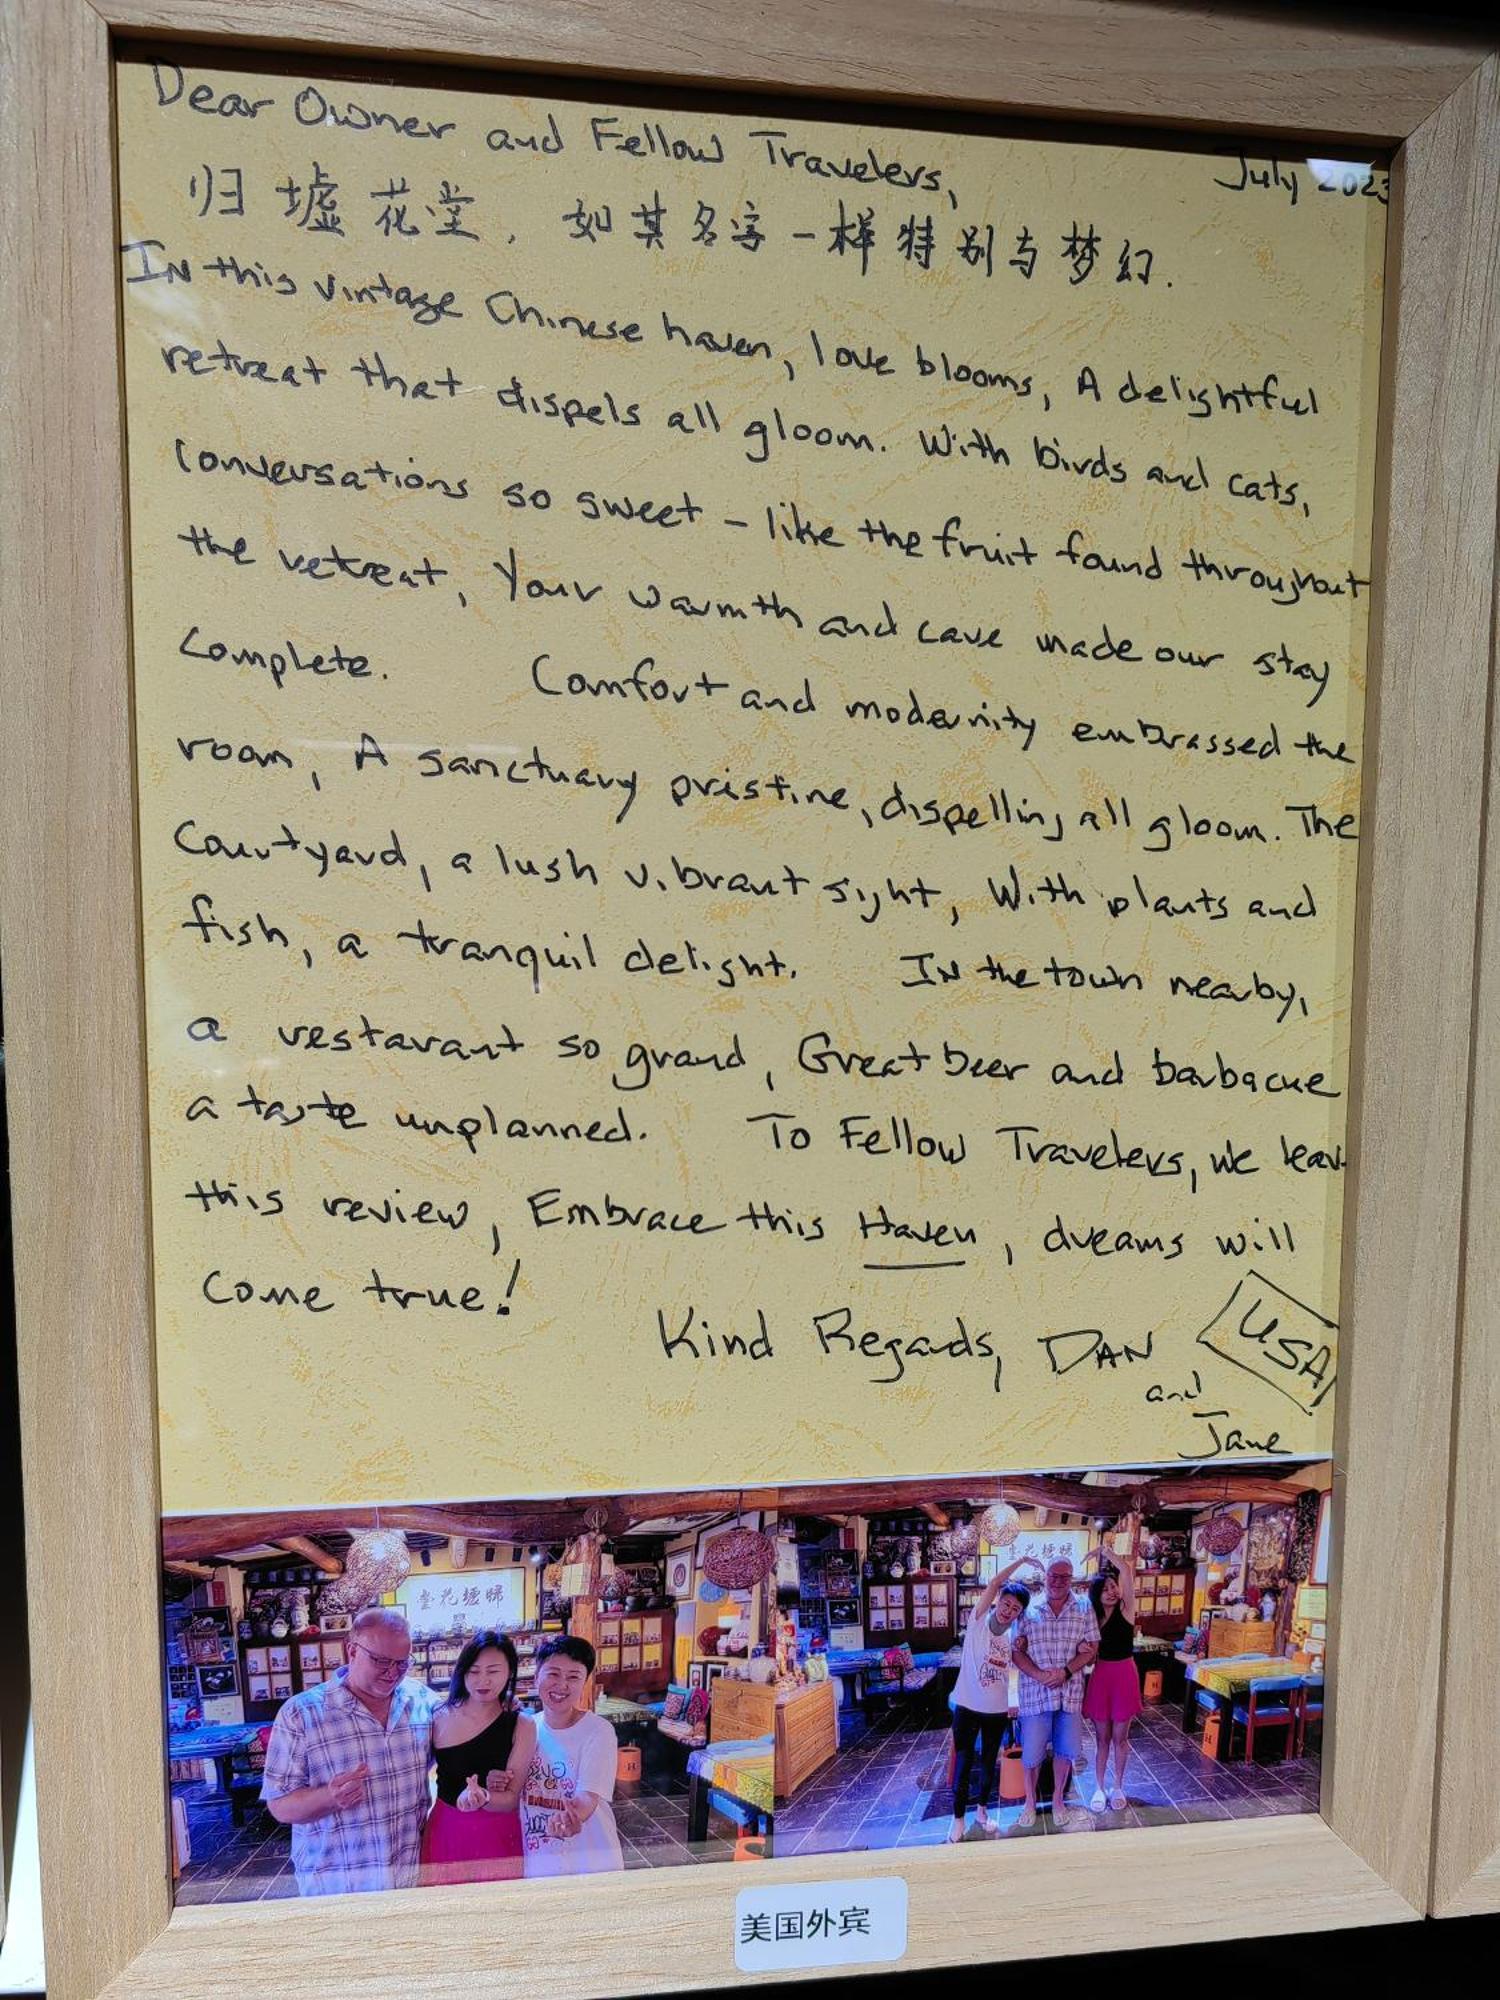 Dear Owner and Fellow Travelers,
July 2023
归墟花堂，如其名字一样特别与梦幻.
IN this vintage Chinese haven, love blooms, A delightful
retreat that dispels all gloom. With birds and cats,
Conversations so sweet – like the fruit found throughout
the retreat, Your warmth and care made our stay
Complete. Comfort and modernity embrassed the
room, A sanctuary pristine, dispelling all gloom. The
Courtyard, a lush vibrant sight, With plants and
fish, a tranquil delight. IN the town nearby,
a restaurant so grand, Great beer and barbacue
a taste unplanned. To Fellow Travelers, we leav
this review, Embrace this Haven, dreams will
Come true!
Kind Regards, DAN
USA
and
Jane
堂花墟歸
堂花墟歸
美国外宾